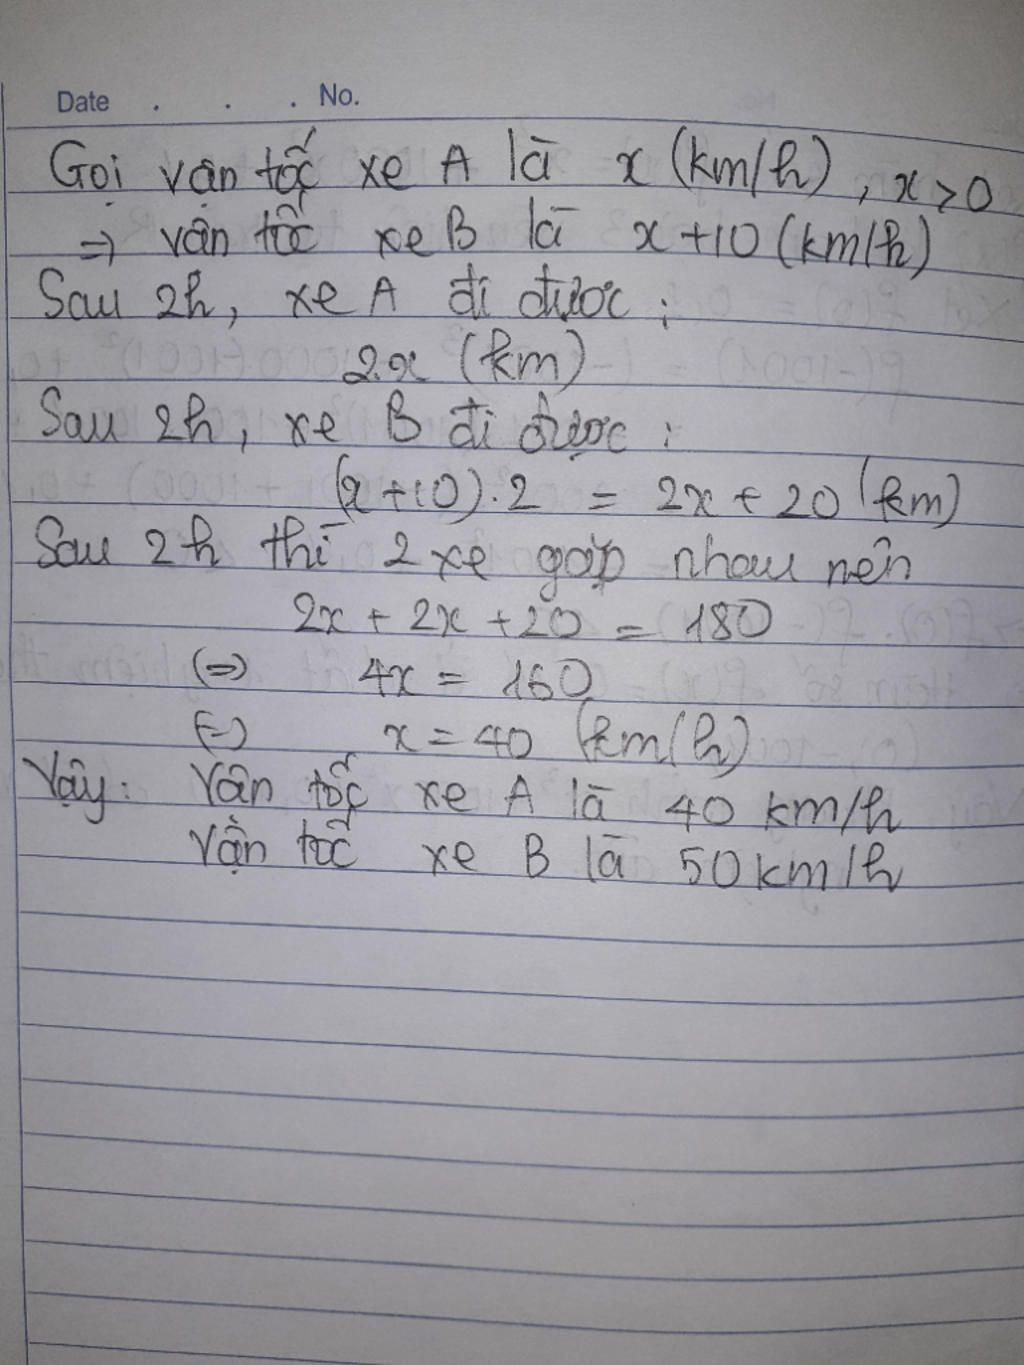 Date . . . No.
Gọi vận tốc xe A là x (km/h), x > 0
=> vân tốc xe B là x + 10 (km/h)
Sau 2h, xe A đi được :
2.x (km)
Sau 2h, xe B đi được :
(x + 10) . 2 = 2x + 20 (km)
Sau 2h thì 2 xe gặp nhau nên
2x + 2x + 20 = 180
(=) 4x = 160
(=) x = 40 (km/h)
Vậy: Vân tốc xe A là 40 km/h
Vận tốc xe B là 50 km/h